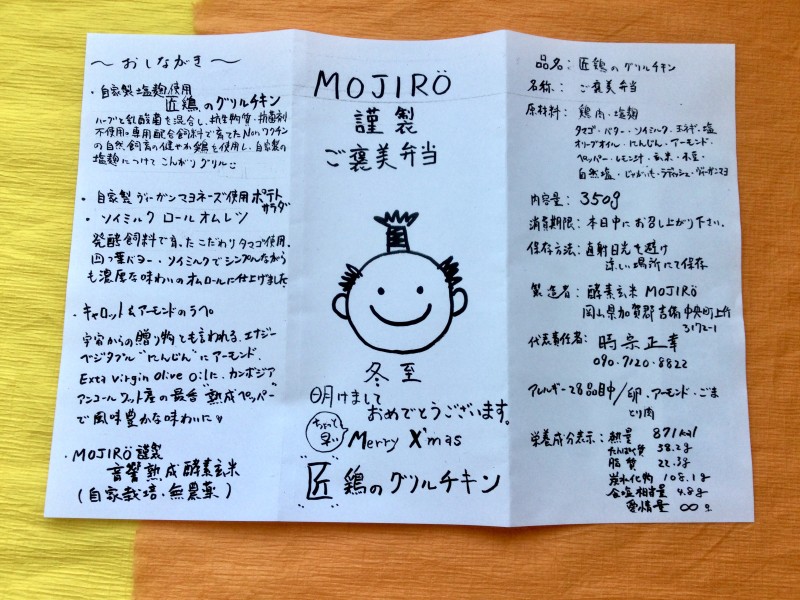 〜おしながき〜
・自家製塩麹使用
匠鶏のグリルチキン
ハーブと乳酸菌を混合し、抗生物質・抗菌剤
不使用。専用配合飼料で育てたNonワクチン
の自然飼育の健やか鶏を使用し、自家製の
塩麹につけてこんがりグリル
・自家製ヴィーガンマヨネーズ使用ポテト
サラダ
・ソイミルクロールオムレツ
発酵飼料で育ったこだわりタマゴ使用。
四つ葉バター・ソイミルクでシンプルながら
も濃厚な味わいのオムロールに仕上げました
・キャロット&アーモンドのラペ
宇宙からの贈り物とも言われる、エナジー
ベジタブル"にんじん"にアーモンド、
Exta Virgin Olive Oilに、カンボジア
アンコールワット産の最香"熟成ペッパー"
で風味豊かな味わいに
・MOJIRÖ謹製
音響熟成酵素玄米
(自家栽培・無農薬)
MOJIRÖ
謹製
ご褒美弁当
冬至
明けまして
おめでとうございます。
ちょっと
早い
Merry X'mas
匠鶏のグリルチキン
品名:匠鶏のグリルチキン
名称:ご褒美弁当
原材料:鶏肉・塩麹
タマゴ・バター・ソイミルク・玉ネギ・塩
オリーブオイル・にんじん・アーモンド・
ペッパー・レモン汁・玄米・小豆・
自然塩・じゃがいも・ラディッシュ・ヴィーガンマヨ
内容量:350g
消費期限:本日中にお召し上がり下さい。
保存方法:直射日光を避け
涼しい場所にて保存
製造者:酵素玄米MOJIRÖ
岡山県加賀郡吉備中央町上竹
3172-1
代表責任者:時宗正幸
090-7120-8822
アレルギー28品目中/卵・アーモンド・ごま
とり肉
栄養成分表示:熱量 871kal
たんぱく質 38.2g
脂質 22.3g
炭水化物 108.1g
食塩相当量 4.8g
愛情量 ∞